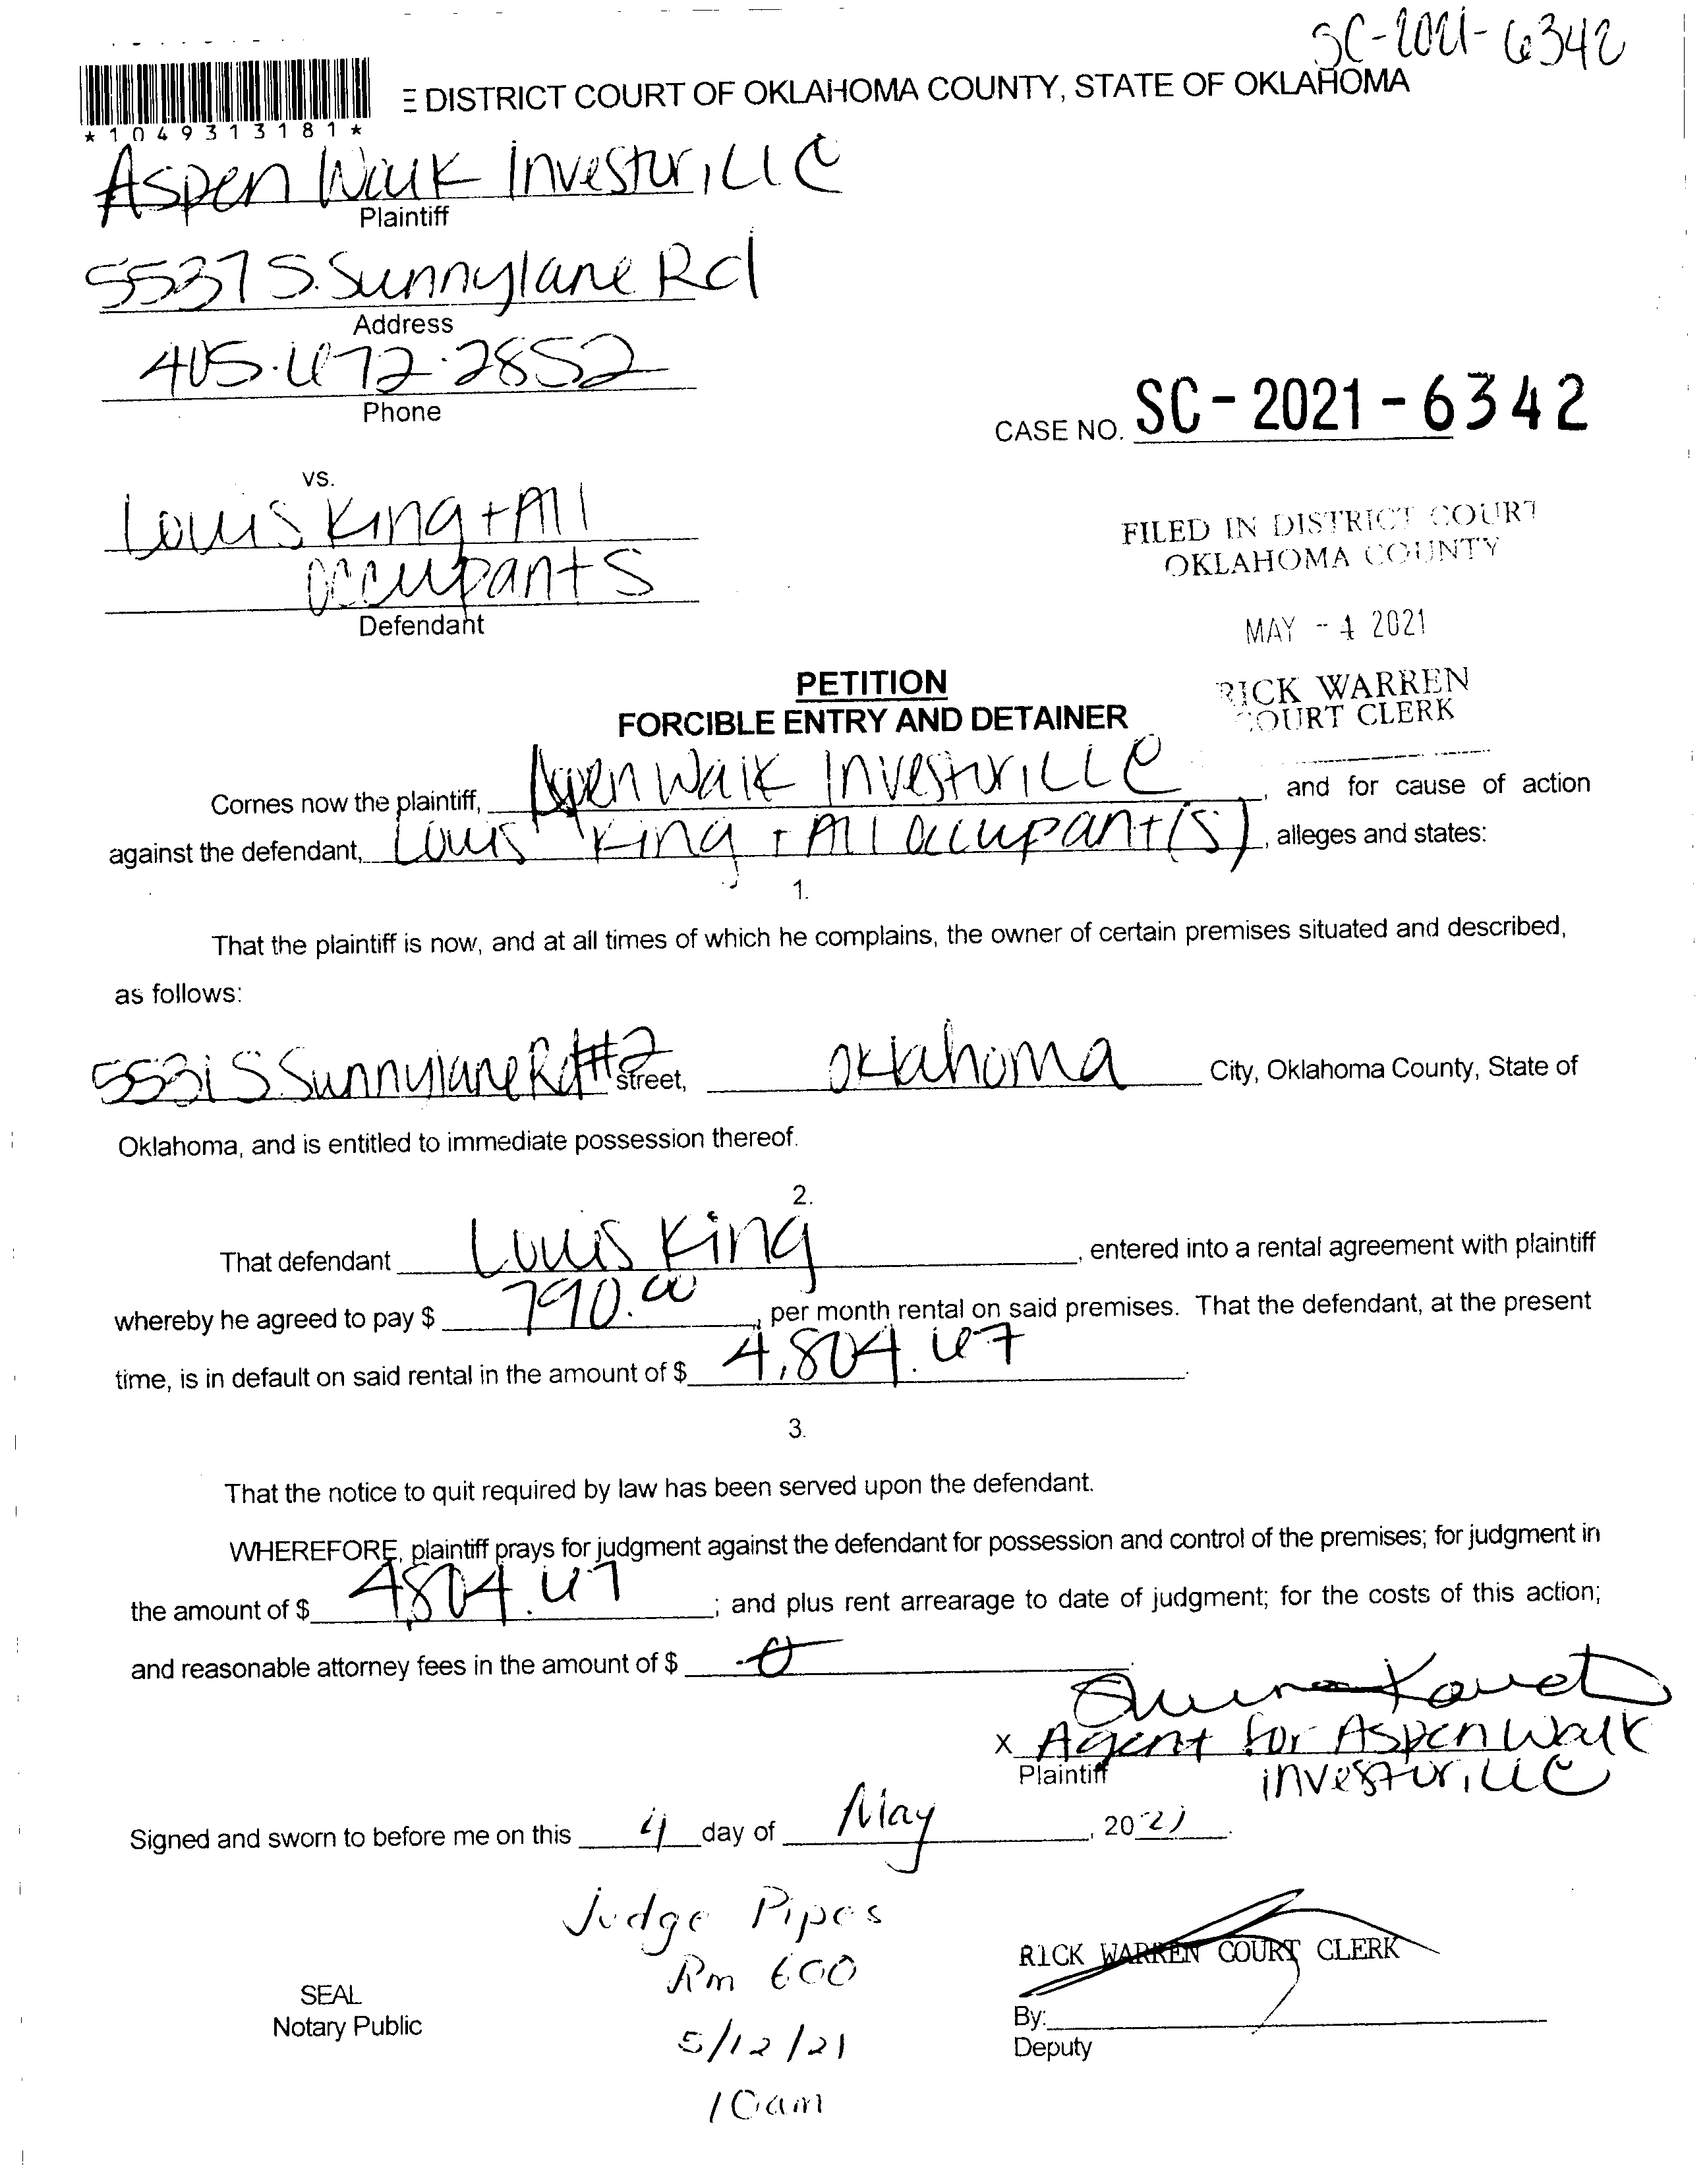 SC-2021-6342
E DISTRICT COURT OF OKLAHOMA COUNTY, STATE OF OKLAHOMA
*1049313181*
Aspen Walk Investor, LLC
Plaintiff
5537 S. Sunnylane Rd
Address
405.672.2852
Phone
CASE NO. SC-2021-6342
vs.
Louis King + All
occupants
Defendant
FILED IN DISTRICT COURT
OKLAHOMA COUNTY
MAY - 4 2021
RICK WARREN
COURT CLERK
PETITION
FORCIBLE ENTRY AND DETAINER
Comes now the plaintiff, Aspen Walk Investor, LLC, and for cause of action
against the defendant, Louis King + All occupant(s), alleges and states:
1.
That the plaintiff is now, and at all times of which he complains, the owner of certain premises situated and described,
as follows:
5531 S Sunnylane Rd #2 street, Oklahoma City, Oklahoma County, State of
Oklahoma, and is entitled to immediate possession thereof.
2.
That defendant Louis King, entered into a rental agreement with plaintiff
whereby he agreed to pay $ 790.00, per month rental on said premises. That the defendant, at the present
time, is in default on said rental in the amount of $ 4,804.67.
3.
That the notice to quit required by law has been served upon the defendant.
WHEREFORE, plaintiff prays for judgment against the defendant for possession and control of the premises; for judgment in
the amount of $ 4,804.67; and plus rent arrearage to date of judgment; for the costs of this action;
and reasonable attorney fees in the amount of $ 0.
x Agent for Aspen Walk
Plaintiff investor, LLC
Signed and sworn to before me on this 4 day of May, 2021.
Judge Pipes
Rm 600
5/12/21
10am
SEAL
Notary Public
RICK WARREN COURT CLERK
By:
Deputy